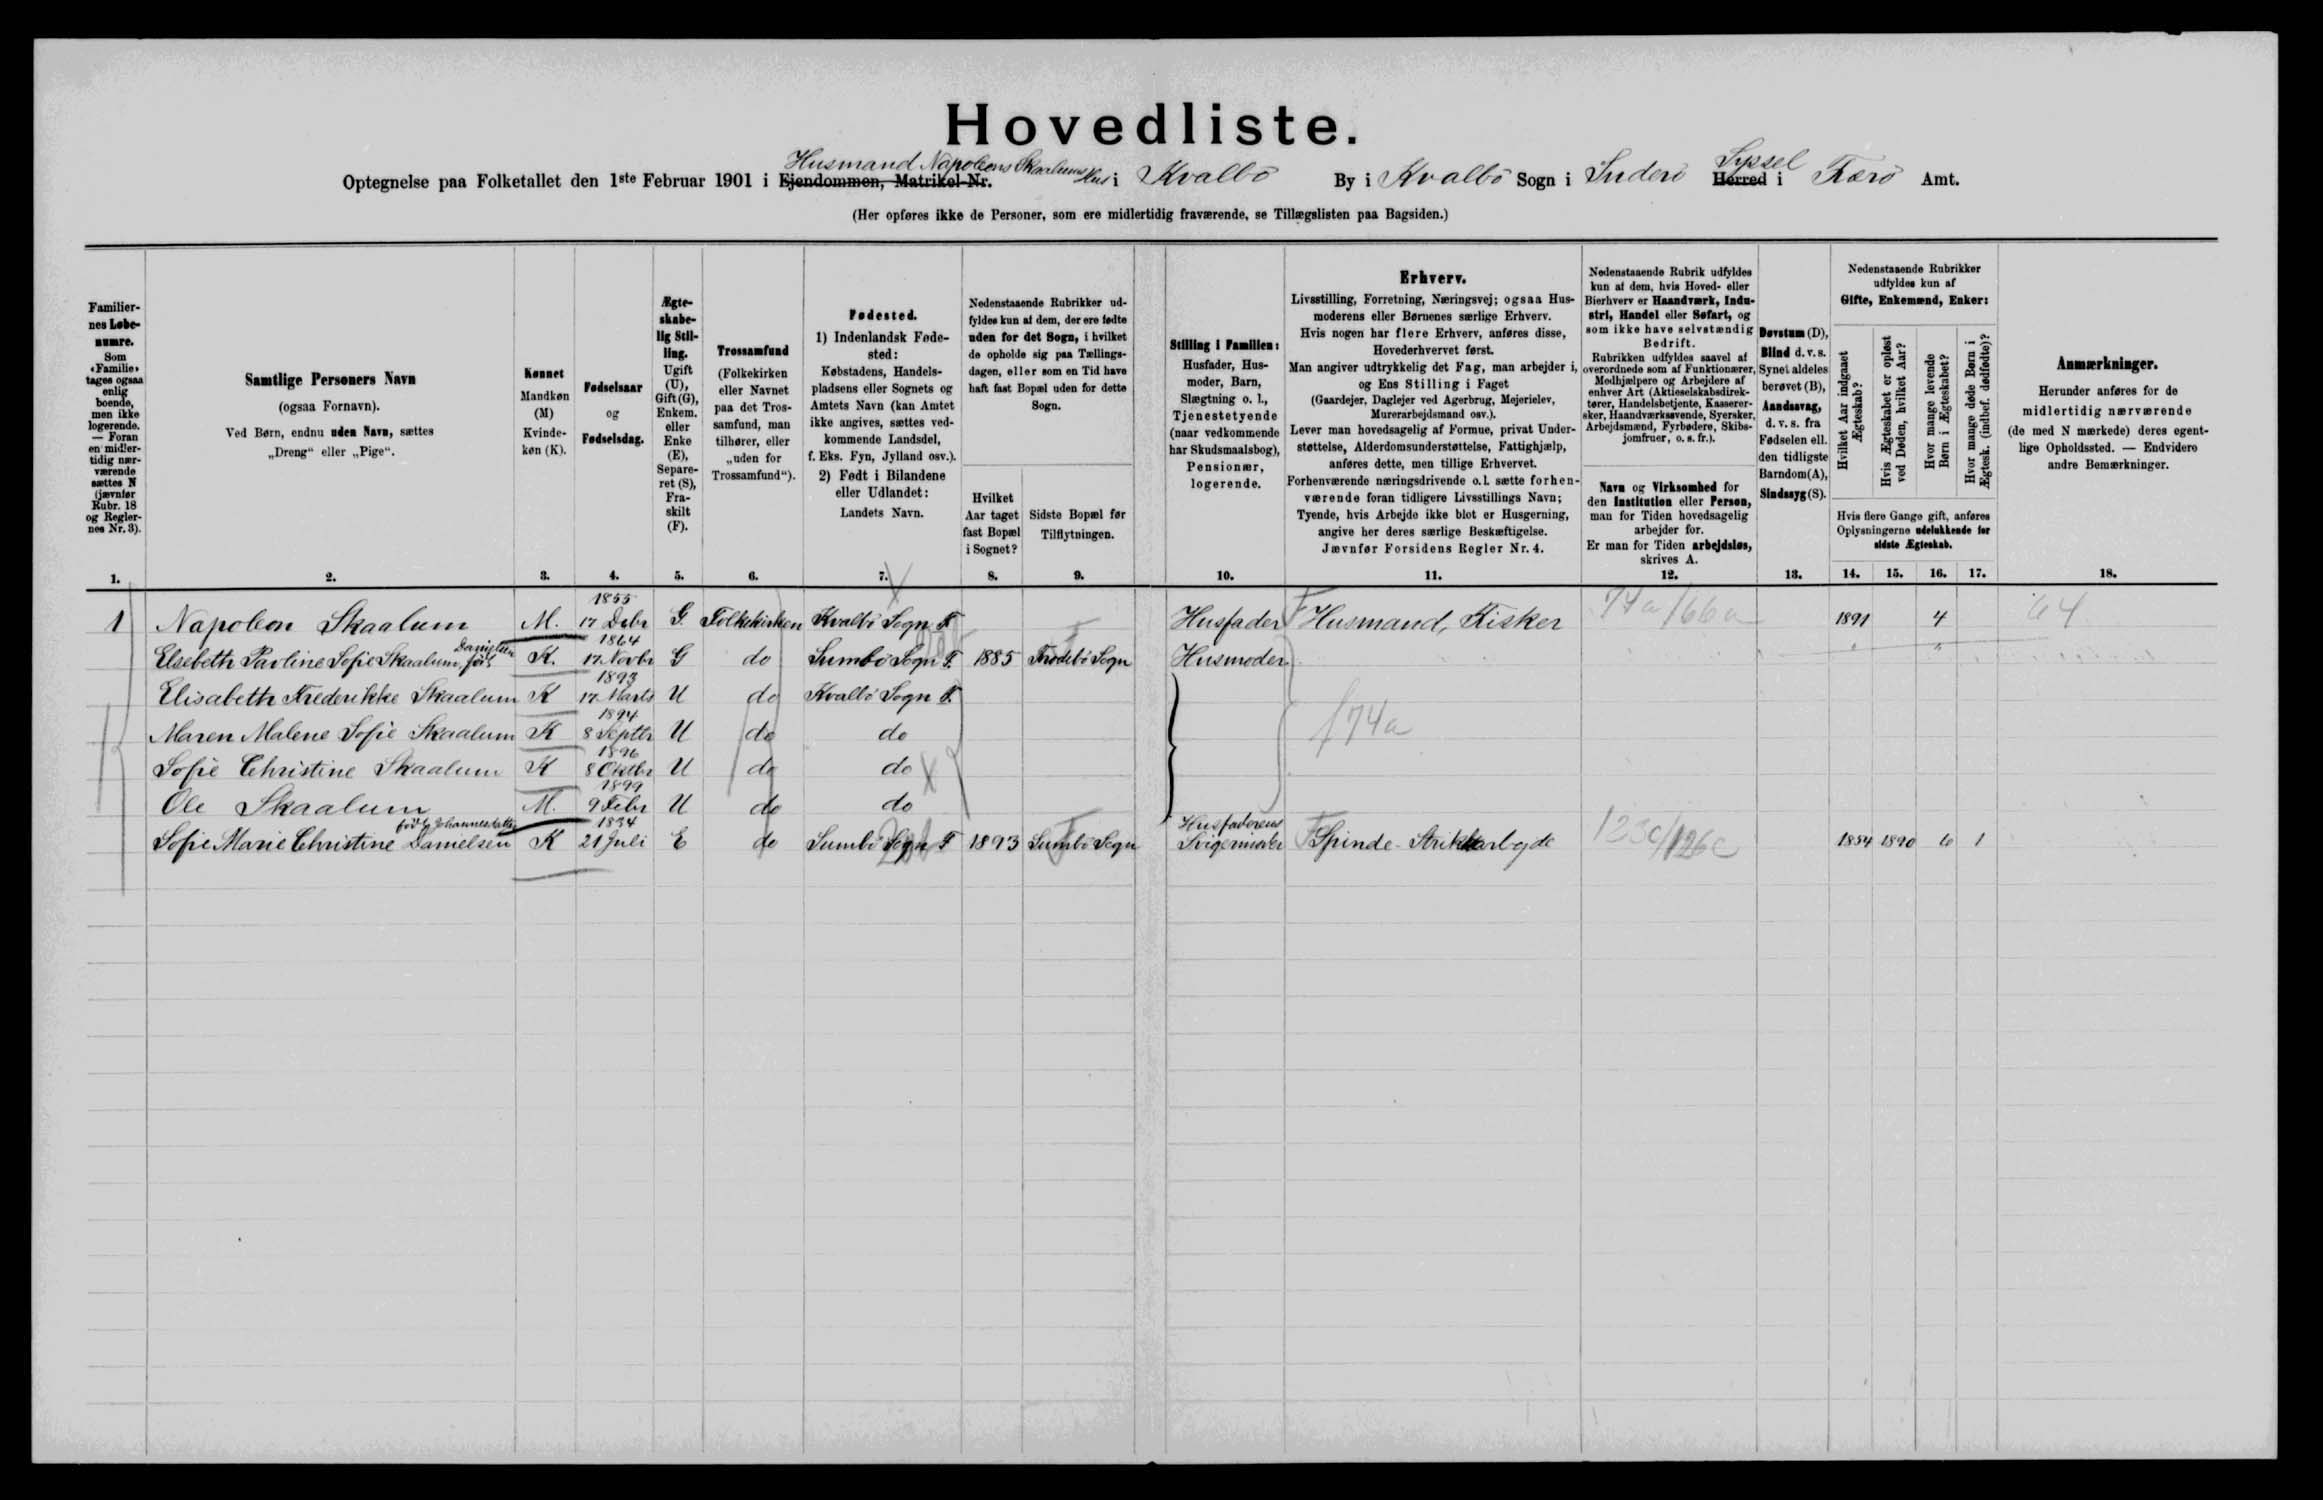 Hovedliste.
Husmand Napoleons Skaalums Hus
Syssel
Optegnelse paa Folketallet den 1ste Februar 1901 i Ejendommen, Matrikel-Nr. i Kvalbö By i Kvalbö Sogn i Suderö Herred i Færö Amt.
(Her opføres ikke de Personer, som ere midlertidig fraværende, se Tillægslisten paa Bagsiden.)
Familiernes Løbenumre. Som «Familie» tages ogsaa enlig boende, men ikke logerende. — Foran en midlertidig nærværende sættes N (jævnfør Rubr. 18 og Reglernes Nr. 3).
Samtlige Personers Navn
(ogsaa Fornavn).
Ved Børn, endnu uden Navn, sættes
„Dreng“ eller „Pige“.
Kønnet Mandkøn (M) Kvindekøn (K).
Fødselsaar og Fødselsdag.
Ægteskabelig Stilling. Ugift (U), Gift (G), Enkem. eller Enke (E), Separeret (S), Fraskilt (F).
Trossamfund (Folkekirken eller Navnet paa det Trossamfund, man tilhører, eller „uden for Trossamfund“).
Fødested.
1) Indenlandsk Fødested: Købstadens, Handelspladsens eller Sognets og Amtets Navn (kan Amtet ikke angives, sættes vedkommende Landsdel, f. Eks. Fyn, Jylland osv.).
2) Født i Bilandene eller Udlandet: Landets Navn.
Nedenstaaende Rubrikker udfyldes kun af dem, der ere fødte uden for det Sogn, i hvilket de opholde sig paa Tællingsdagen, eller som en Tid have haft fast Bopæl uden for dette Sogn.
Hvilket Aar taget fast Bopæl i Sognet?
Sidste Bopæl før Tilflytningen.
Stilling i Familien: Husfader, Husmoder, Barn, Slægtning o. l., Tjenestetyende (naar vedkommende har Skudsmaalsbog), Pensionær, logerende.
Erhverv.
Livsstilling, Forretning, Næringsvej; ogsaa Husmoderens eller Børnenes særlige Erhverv.
Hvis nogen har flere Erhverv, anføres disse, Hovederhvervet først.
Man angiver udtrykkelig det Fag, man arbejder i, og Ens Stilling i Faget
(Gaardejer, Daglejer ved Agerbrug, Mejerielev, Murerarbejdsmand osv.).
Lever man hovedsagelig af Formue, privat Understøttelse, Alderdomsunderstøttelse, Fattighjælp, anføres dette, men tillige Erhvervet.
Forhenværende næringsdrivende o. l. sætte forhenværende foran tidligere Livsstillings Navn; Tyende, hvis Arbejde ikke blot er Husgerning, angive her deres særlige Beskæftigelse.
Jævnfør Forsidens Regler Nr. 4.
Nedenstaaende Rubrik udfyldes kun af dem, hvis Hoved- eller Bierhverv er Haandværk, Industri, Handel eller Søfart, og som ikke have selvstændig Bedrift.
Rubrikken udfyldes saavel af overordnede som af Funktionærer, Medhjælpere og Arbejdere af enhver Art (Aktieselskabsdirektører, Handelsbetjente, Kasserersker, Haandværkssvende, Syersker, Arbejdsmænd, Fyrbødere, Skibsjomfruer, o. s. fr.).
Navn og Virksomhed for den Institution eller Person, man for Tiden hovedsagelig arbejder for.
Er man for Tiden arbejdsløs, skrives A.
Døvstum (D), Blind d. v. s. Synet aldeles berøvet (B), Aandssvag, d. v. s. fra Fødselen ell. den tidligste Barndom (A), Sindssyg (S).
Nedenstaaende Rubrikker udfyldes kun af Gifte, Enkemænd, Enker:
Hvilket Aar indgaaet Ægteskab?
Hvis Ægteskabet er opløst ved Døden, hvilket Aar?
Hvor mange levende Børn i Ægteskabet?
Hvor mange døde Børn i Ægtesk. (indbef. dødfødte)?
Hvis flere Gange gift, anføres Oplysningerne udelukkende for sidste Ægteskab.
Anmærkninger.
Herunder anføres for de midlertidig nærværende (de med N mærkede) deres egentlige Opholdssted. — Endvidere andre Bemærkninger.
1. 2. 3. 4. 5. 6. 7. 8. 9. 10. 11. 12. 13. 14. 15. 16. 17. 18.
1 Napoleon Skaalum M. 1855 17 Debr G. Folkekirken Kvalbö Sogn F. Husfader F Husmand, Fisker 74a/66a 1891 4 64
Elsebeth Pauline Sofie Skaalum, föd Danielsen K. 1864 17 Novbr G do Sumbö Sogn F. 1885 Frodebö Sogn Husmoder " "
Elisabeth Frederikke Skaalum K 1893 17 Marts U do Kvalbö Sogn F.
Maren Malene Sofie Skaalum K 1894 8 Septbr U do do f74a
Sofie Christine Skaalum K 1896 8 Oktbr U do do
Ole Skaalum M. 1899 9 Febr U do do
Sofie Marie Christine Danielsen född Johannesdatter K 1834 21 Juli E do Sumbö Sogn F 1893 Sumbö Sogn Husfaderens Svigermoder F Spinde- Strikkearbejde 123c/126c 1854 1890 6 1